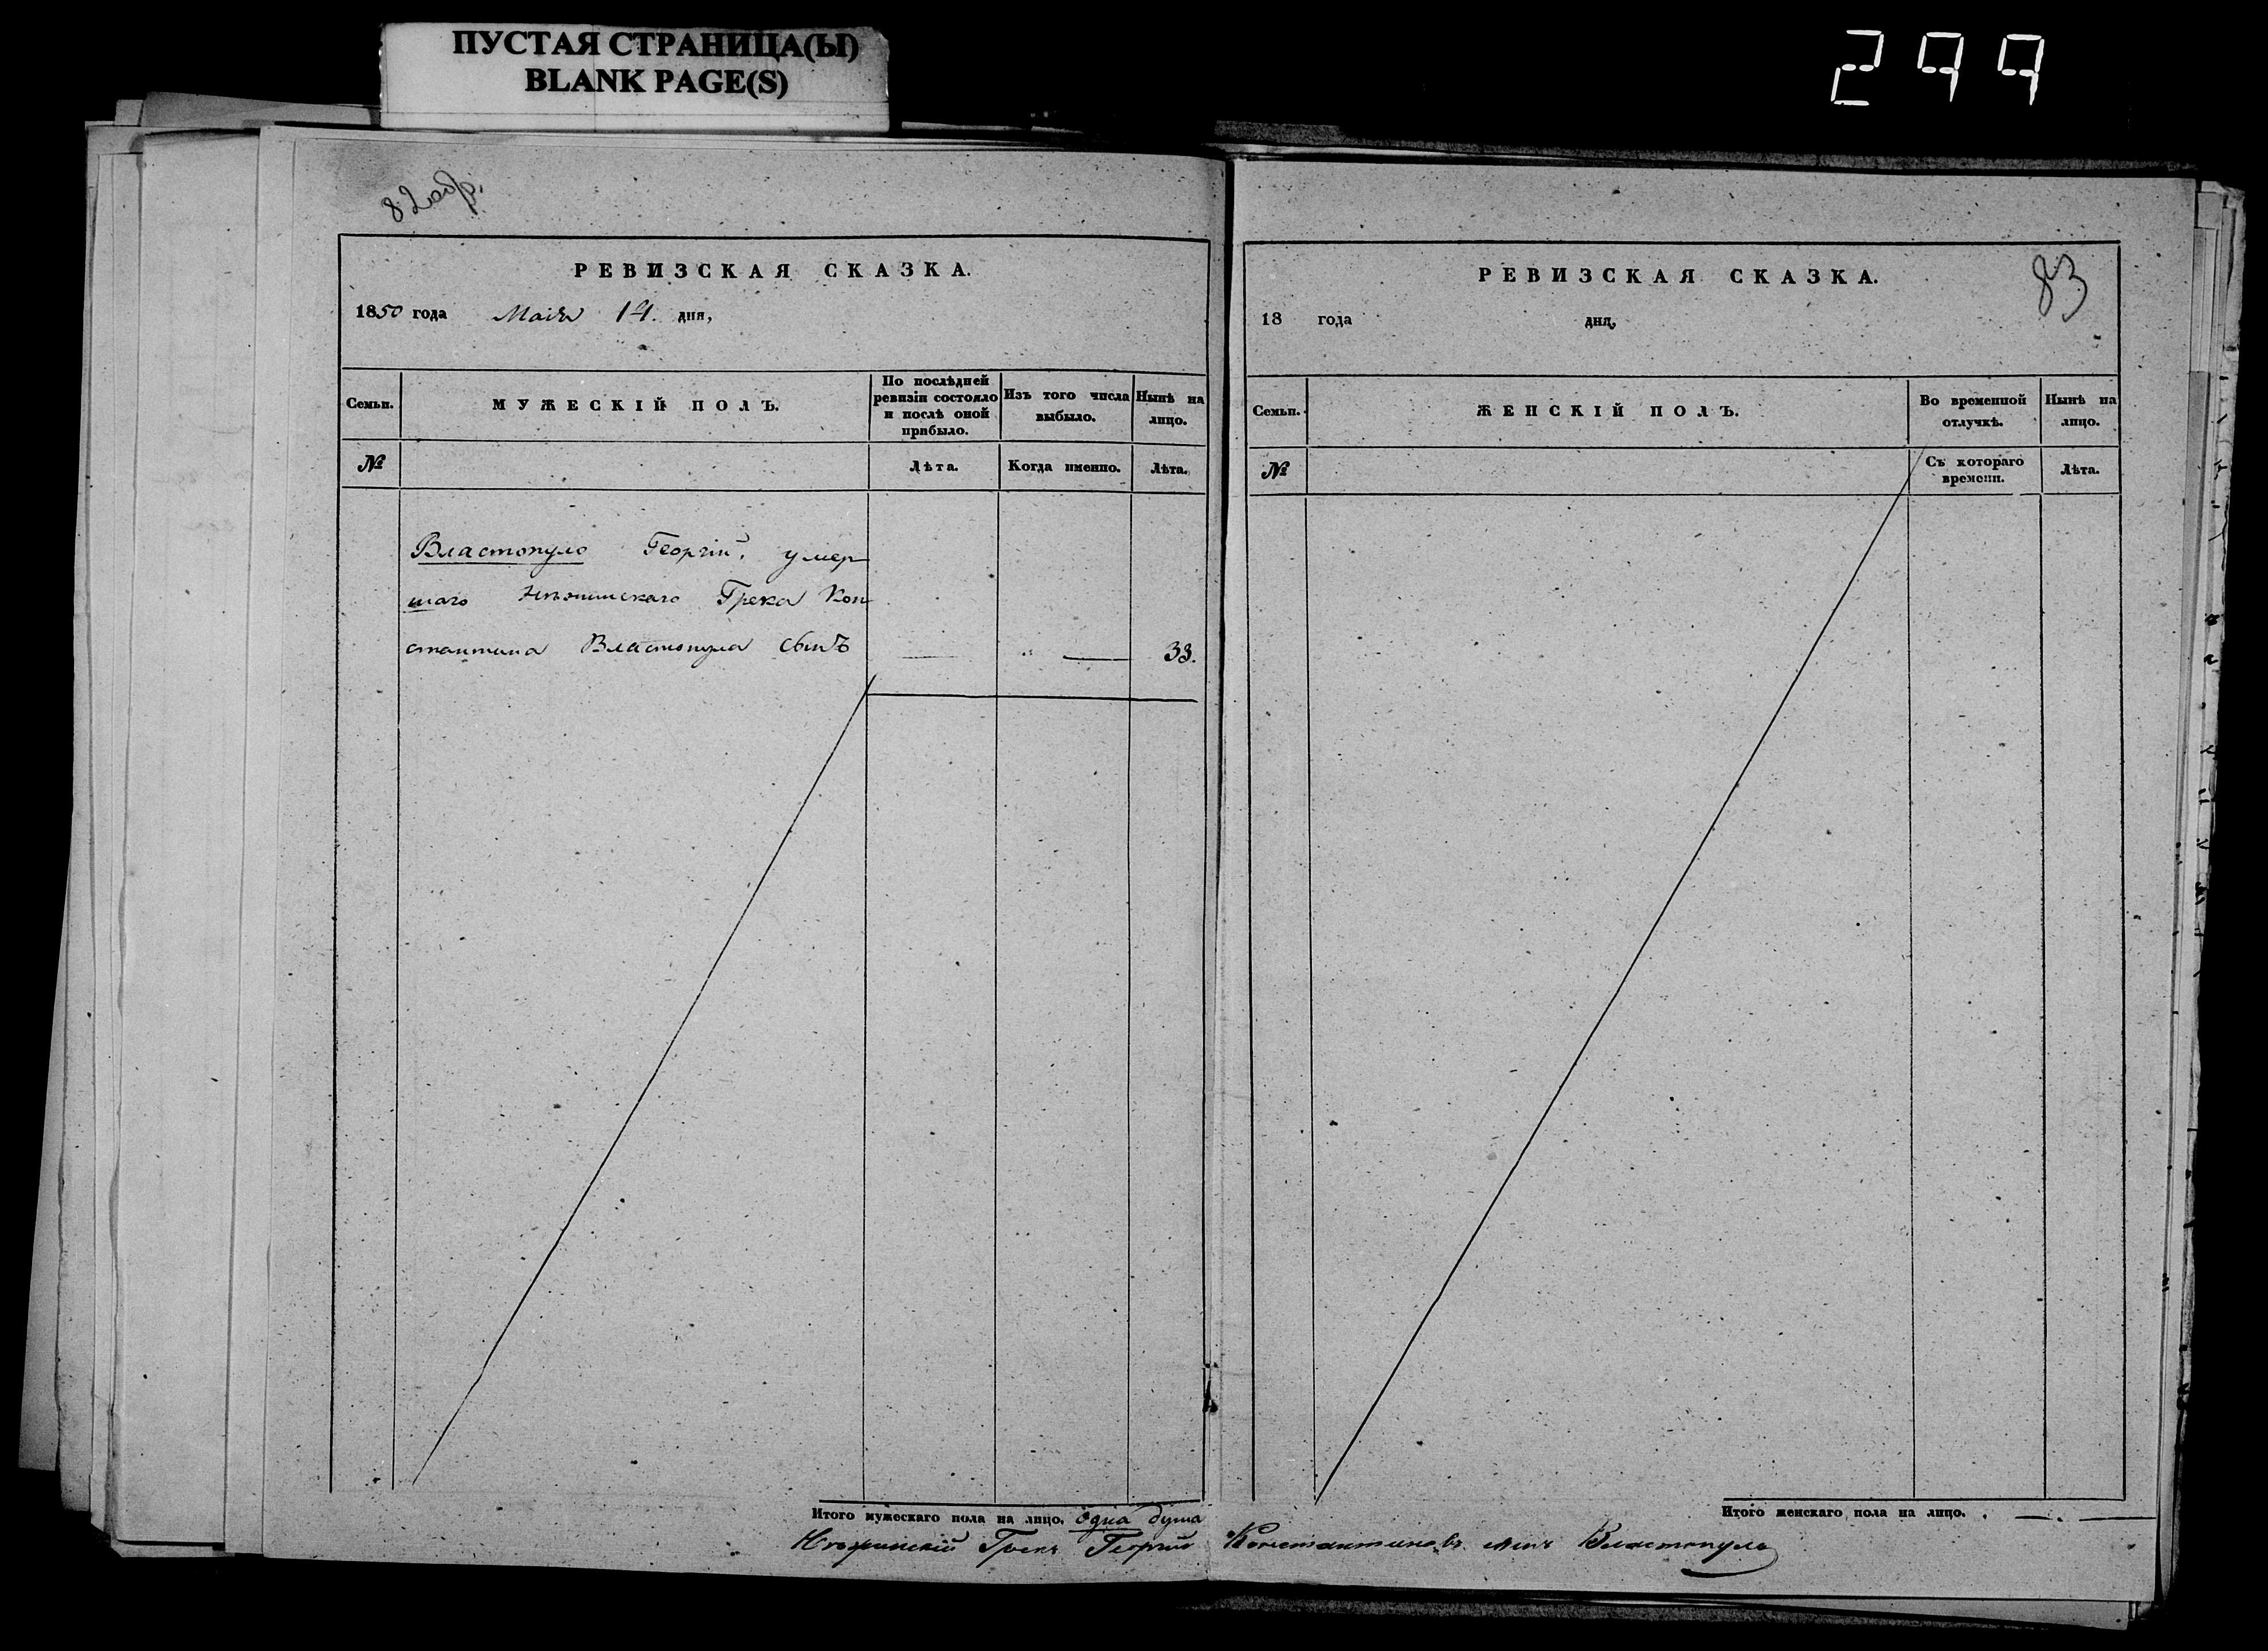 ПУСТАЯ СТРАНИЦА(Ы)
BLANK PAGE(S)
299
82 обр.
РЕВИЗСКАЯ СКАЗКА.
1850 года Маія 14. дня,
Семьи.
МУЖЕСКІЙ ПОЛЪ.
По послѣдней
ревизіи состояло
и послѣ оной
прибыло.
Изъ того числа
выбыло.
Нынѣ на
лицо.
№
Лѣта.
Когда именно.
Лѣта.
Властопуло Георгій, умер
шаго Нѣжинскаго Грека Кон
стантина Властопула сынъ 33.
Итого мужескаго пола на лицо. одна душа
83
РЕВИЗСКАЯ СКАЗКА.
18 года дня,
Семьи.
ЖЕНСКІЙ ПОЛЪ.
Во временной
отлучкѣ.
Нынѣ на
лицо.
№
Съ котораго
времени.
Лѣта.
Итого женскаго пола на лицо.
Нѣжинскій Грекъ Георгій Константиновъ сынъ Властопуло